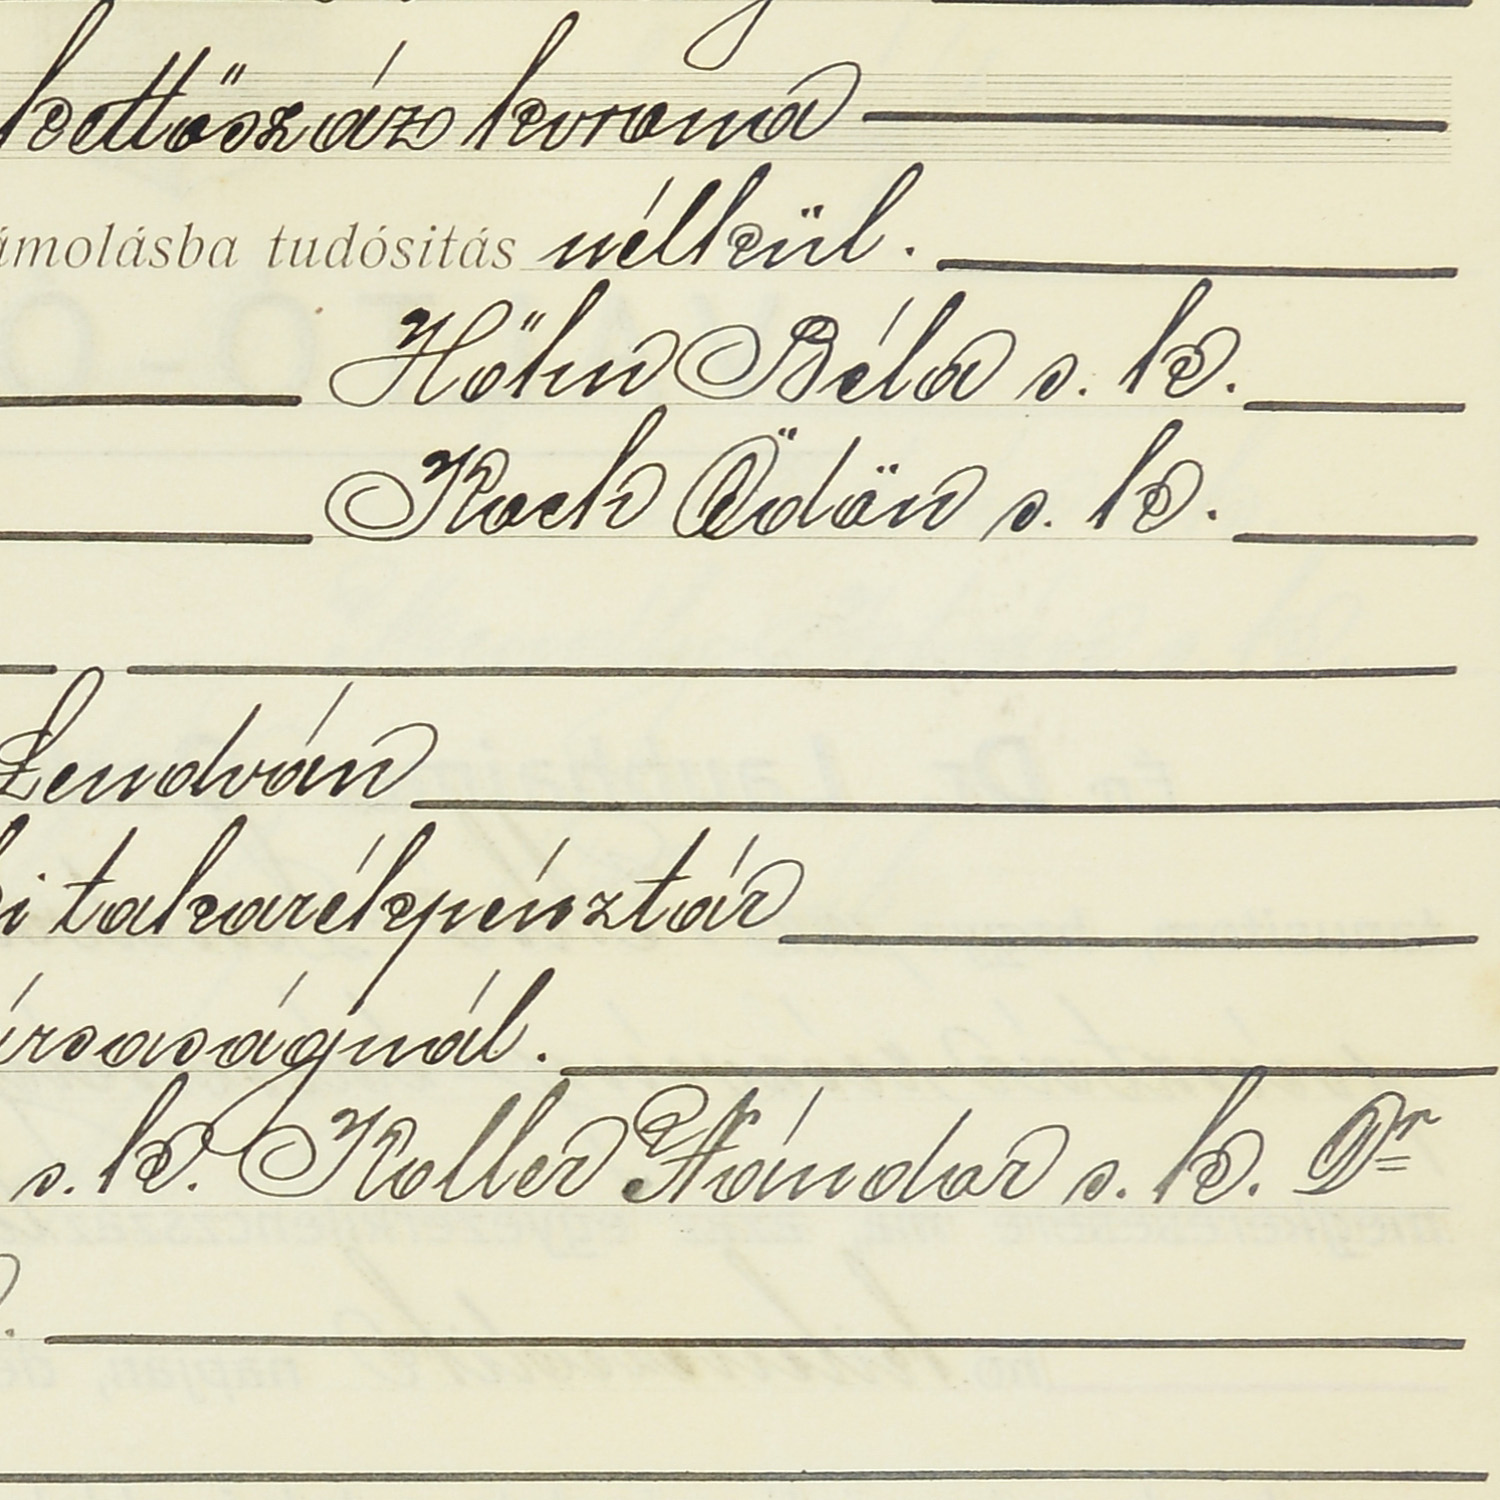 kettőszáz korona
ámolásba tudósitás nélkül.
Höhn Béla s. k.
Koch Ödön s. k.
Lendván
i takarékpénztár
ársaságnál.
s. k. Koller Nándor s. k. Dr